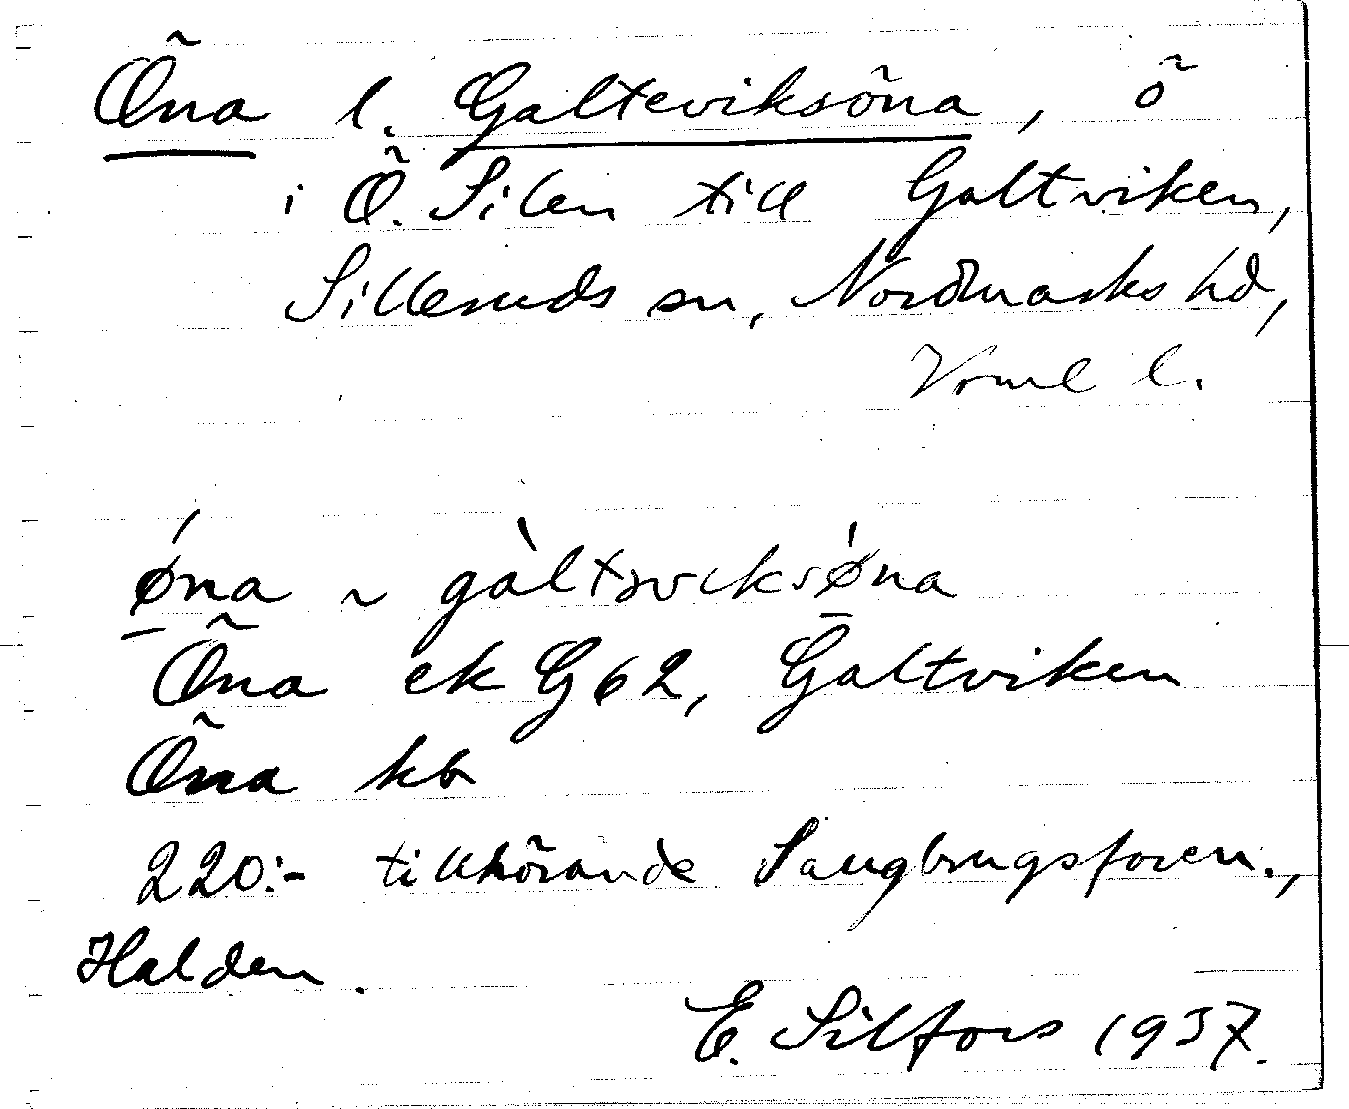 Öna l. Galteviksöna, ö
i Ö. Silen till Galtviken,
Silleruds sn, Nordmarks hd,
Vrml l.
øna ~ gàltəviksøna
Öna ek G62, Galtviken
Öna kb
220:- tillhörande Saugbrugsforen.,
Halden.
E. Silfors 1937.